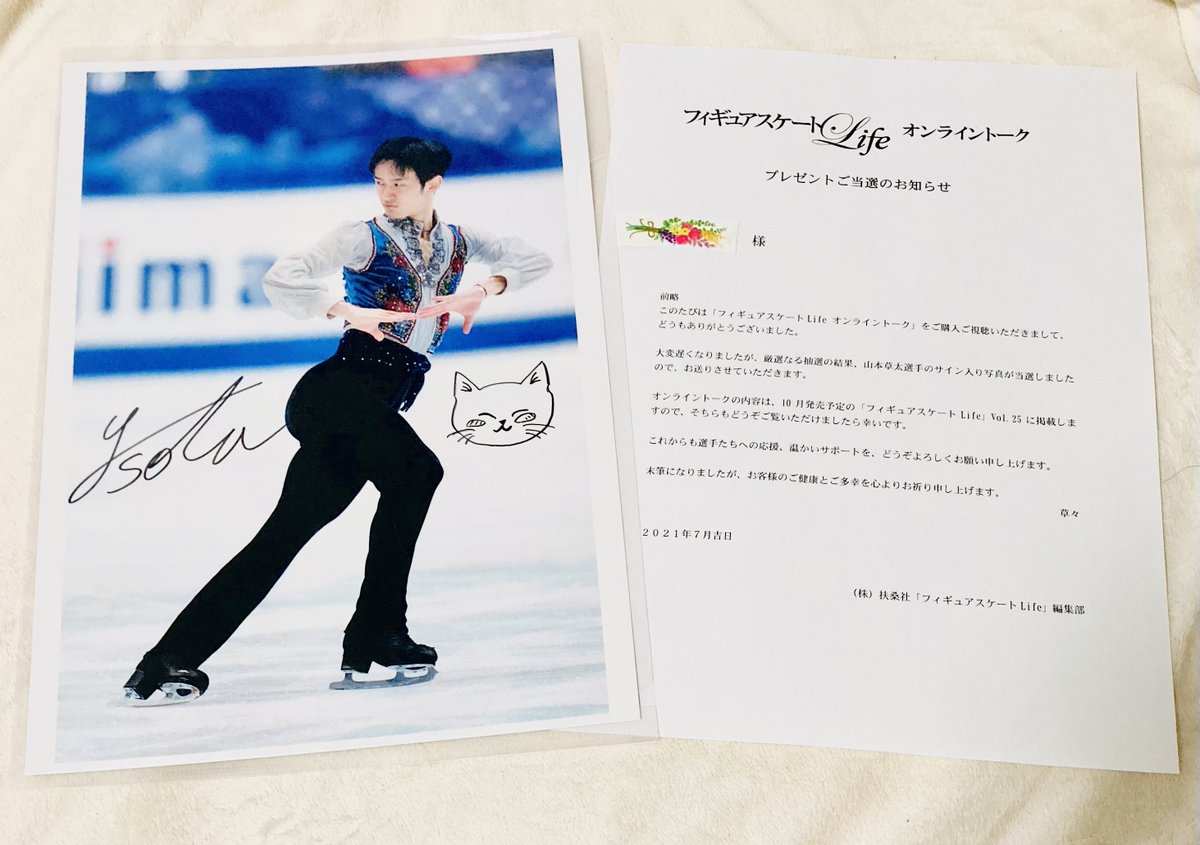 ima
Ysota
フィギュアスケートLife オンライントーク
プレゼントご当選のお知らせ
様
前略
このたびは「フィギュアスケートLife オンライントーク」をご購入ご視聴いただきまして、
どうもありがとうございました。
大変遅くなりましたが、厳選なる抽選の結果、山本草太選手のサイン入り写真が当選しました
ので、お送りさせていただきます。
オンライントークの内容は、10月発売予定の「フィギュアスケートLife」Vol.25 に掲載しま
すので、そちらもどうぞご覧いただけましたら幸いです。
これからも選手たちへの応援、温かいサポートを、どうぞよろしくお願い申し上げます。
末筆になりましたが、お客様のご健康とご多幸を心よりお祈り申し上げます。
草々
２０２１年７月吉日
（株）扶桑社「フィギュアスケートLife」編集部